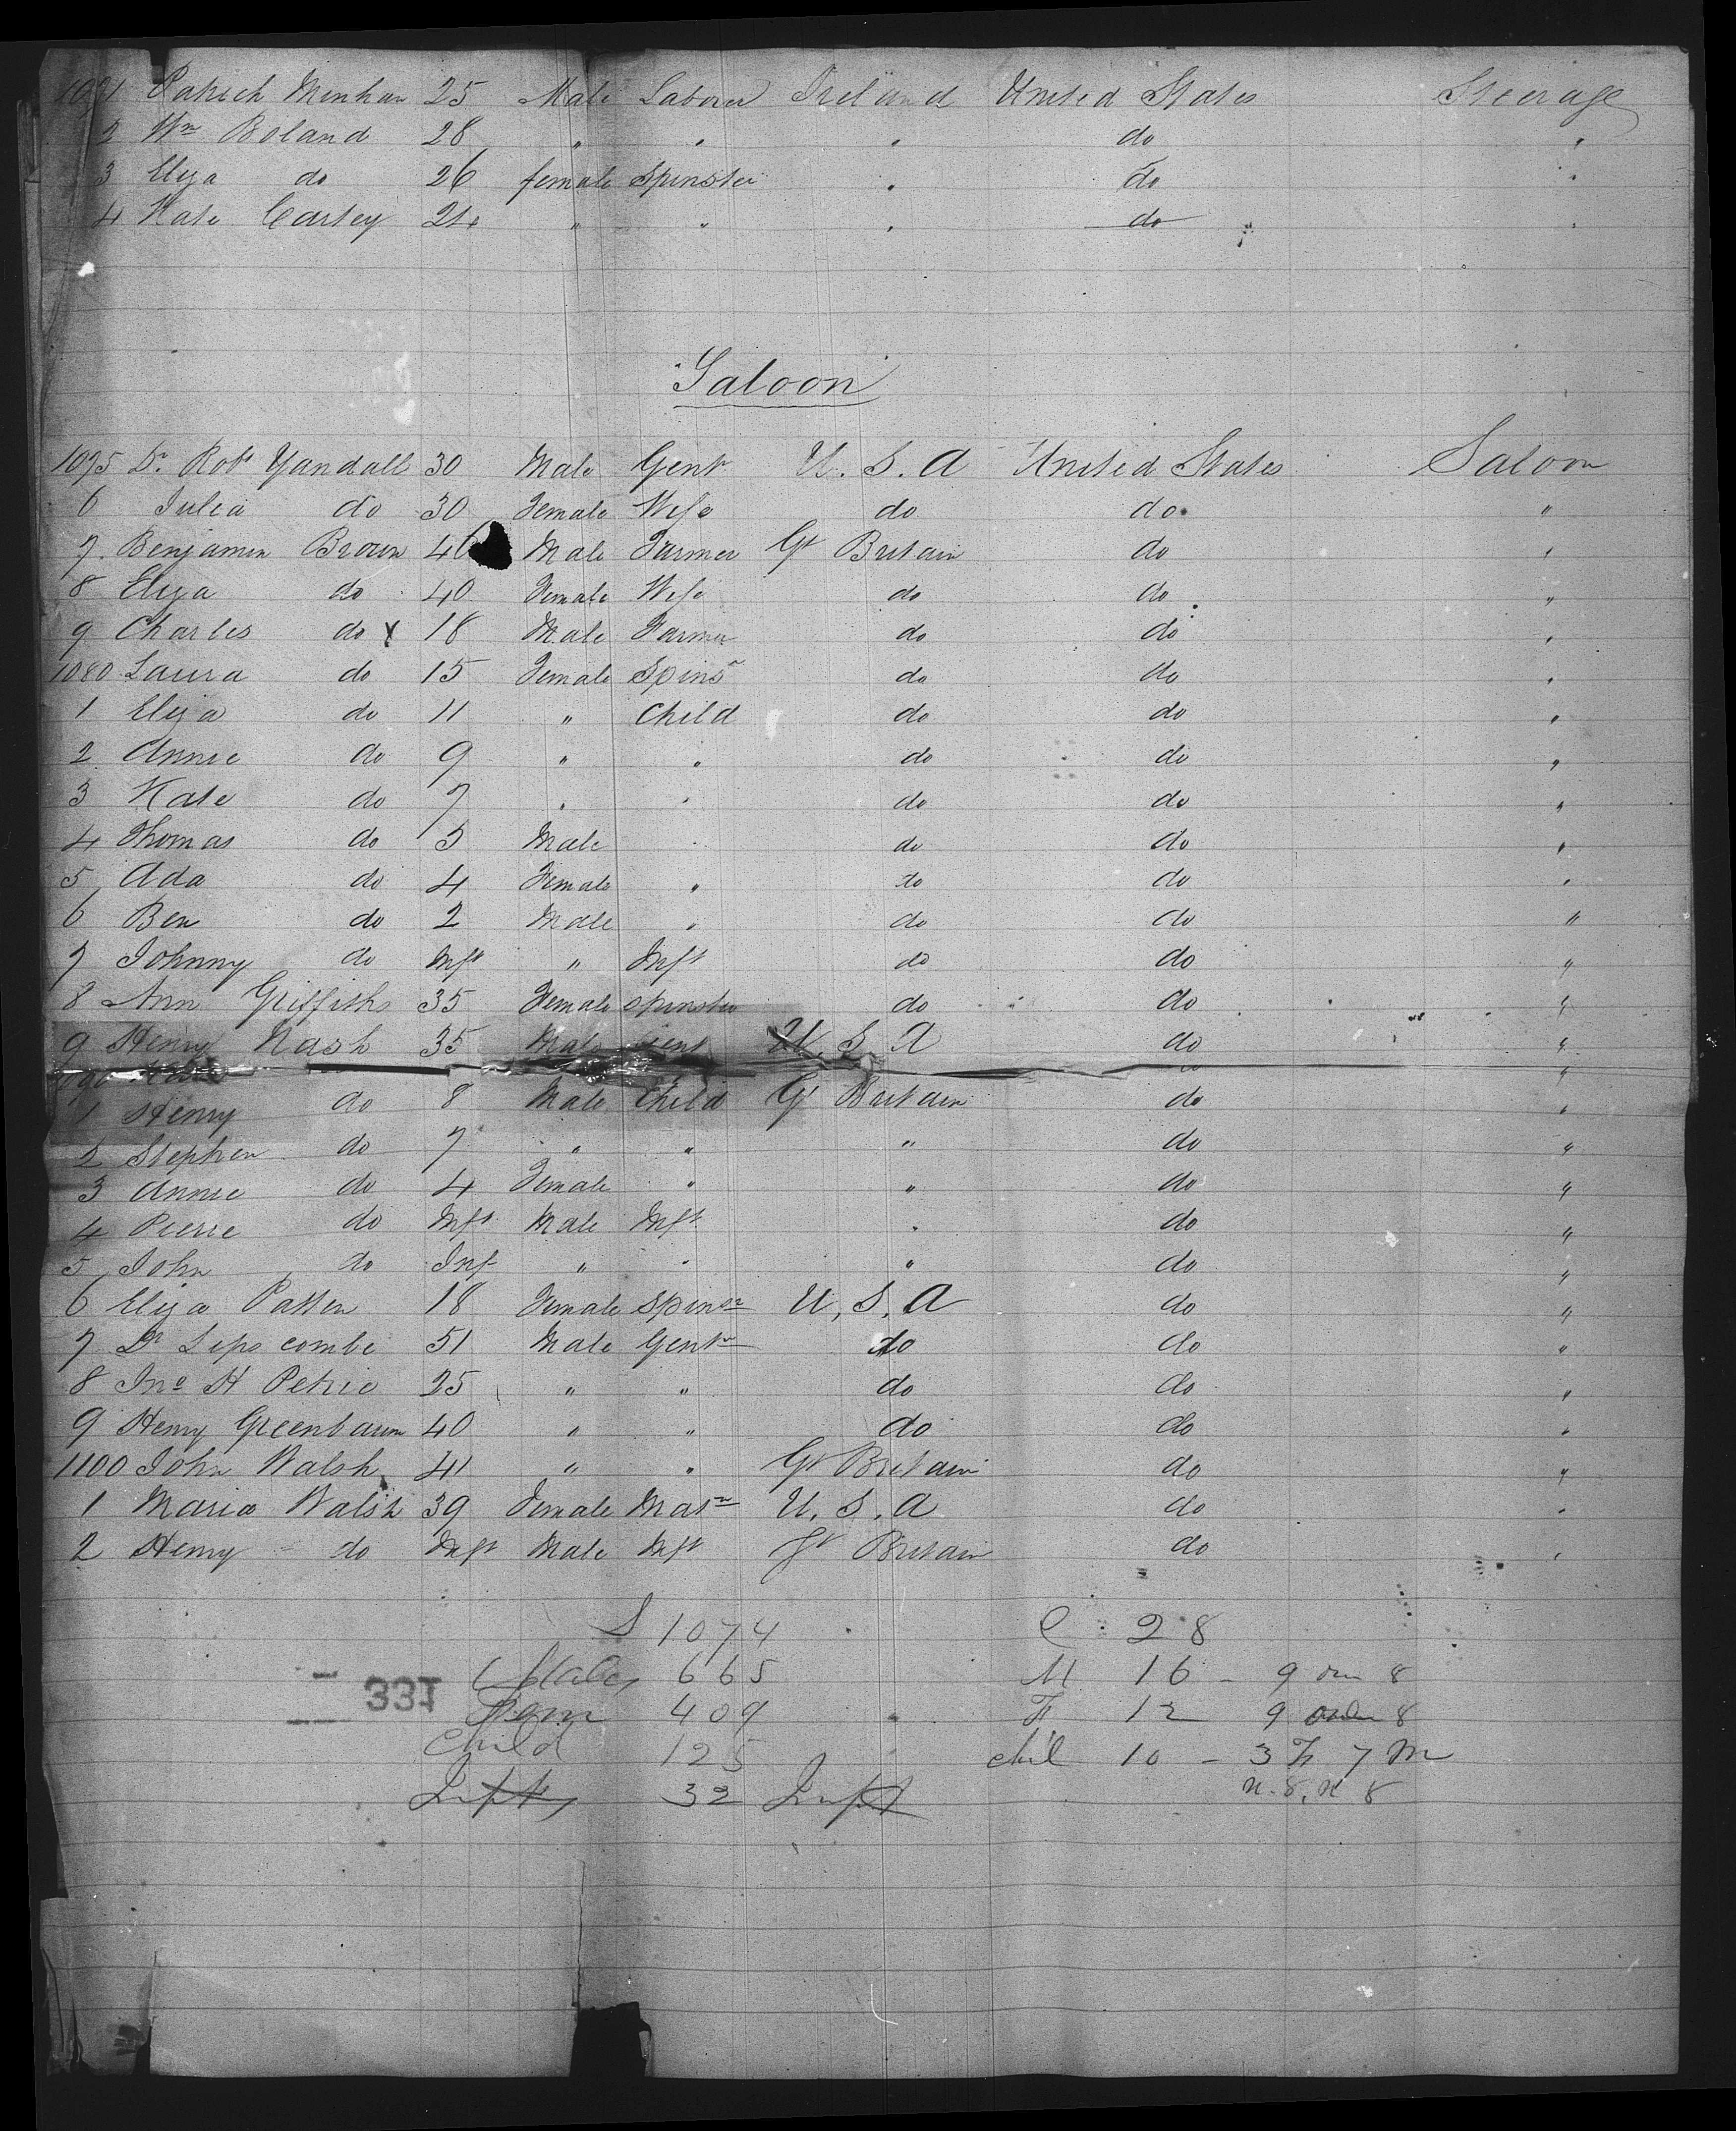 1071 Patrick Minhan 25 Male Laborer Ireland United States Steerage
2 Wm Boland 28 " " " do "
3 Eliza do 26 female Spinster " do "
4 Kate Carley 24 " " " do "
Saloon
1075 Dr. Robt Yandall 30 Male Gent U.S.A United States Saloon
6 Julia do 30 Female Wife do do "
7. Benjamin Brown 46 Male Farmer Gt Britain do "
8 Eliza do 40 Female Wife do do "
9 Charles do x 18 Male Farmer do do "
1080 Laura do 15 Female Spinsr do do "
1 Eliza do 11 " Child do do "
2. Annie do 9 " " do do "
3 Kate do 7 " " do do "
4 Thomas do 5 Male " do do "
5 Ada do 4 Female " do do "
6 Ben do 2 Male " do do "
7 Johnny do Inft " Inft do do "
8 Ann Griffiths 35 Female Spinster do do "
9 Henry Nash 35 Male Gent U.S.A do "
1090 "
1 Henry do 8 Male Child Gt Britain do "
2 Stephen do 7 " " " do "
3 Annie do 4 Female " " do "
4 Pierre do Inft Male Inft " do "
5 John do Inf " " " do "
6 Eliza Patten 18 Female Spinsr U.S.A do "
7 Dr Lipscombe 51 Male Gentn do do "
8 Jno H Petrie 25 " " do do "
9 Henry Greenbaum 40 " " do do "
1100 John Walsh 41 " " Gt Britain do "
1 Maria Walsh 39 Female Matn U.S.A do "
2 Henry do Inft Male Inft Gt Britain do "
S 1074 C 28
Males 665 M 16 - 9 over 8
Fem 409 F 12 9 over 8
Child 125 Chil 10 - 3 F 7 M
Infts 32 Inft u. 8. u 8
331